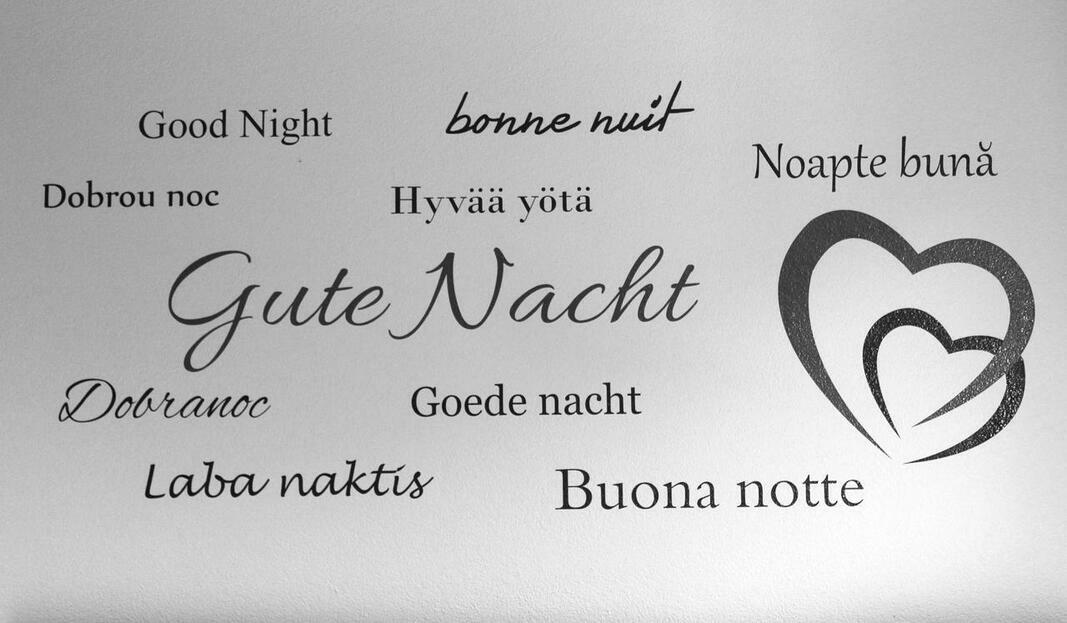 Good Night
bonne nuit
Noapte bună
Dobrou noc
Hyvää yötä
Gute Nacht
Dobranoc
Goede nacht
Laba naktis
Buona notte